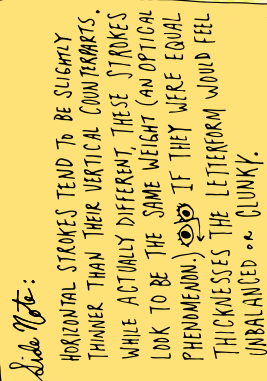 Side Note:
HORIZONTAL STROKES TEND TO BE SLIGHTLY
THINNER THAN THEIR VERTICAL COUNTERPARTS.
WHILE ACTUALLY DIFFERENT, THESE STROKES
LOOK TO BE THE SAME WEIGHT (AN OPTICAL
PHENOMENON.) IF THEY WERE EQUAL
THICKNESSES THE LETTERFORM WOULD FEEL
UNBALANCED OR CLUNKY.